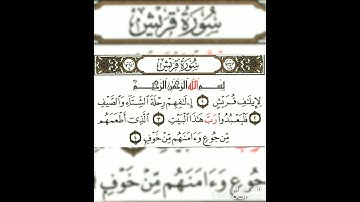 سُورَةُ قُرَيْشٍ
سُورَةُ قُرَيْشٍ
بِسْمِ ٱللَّهِ ٱلرَّحْمَٰنِ ٱلرَّحِيمِ
لِإِيلَٰفِ قُرَيْشٍ ١ إِۦلَٰفِهِمْ رِحْلَةَ ٱلشِّتَآءِ وَٱلصَّيْفِ
٢ فَلْيَعْبُدُوا۟ رَبَّ هَٰذَا ٱلْبَيْتِ ٣ ٱلَّذِىٓ أَطْعَمَهُم
مِّن جُوعٍ وَءَامَنَهُم مِّنْ خَوْفٍۭ ٤
جُوعٍ وَءَامَنَهُم مِّنْ خَوْفٍۭ